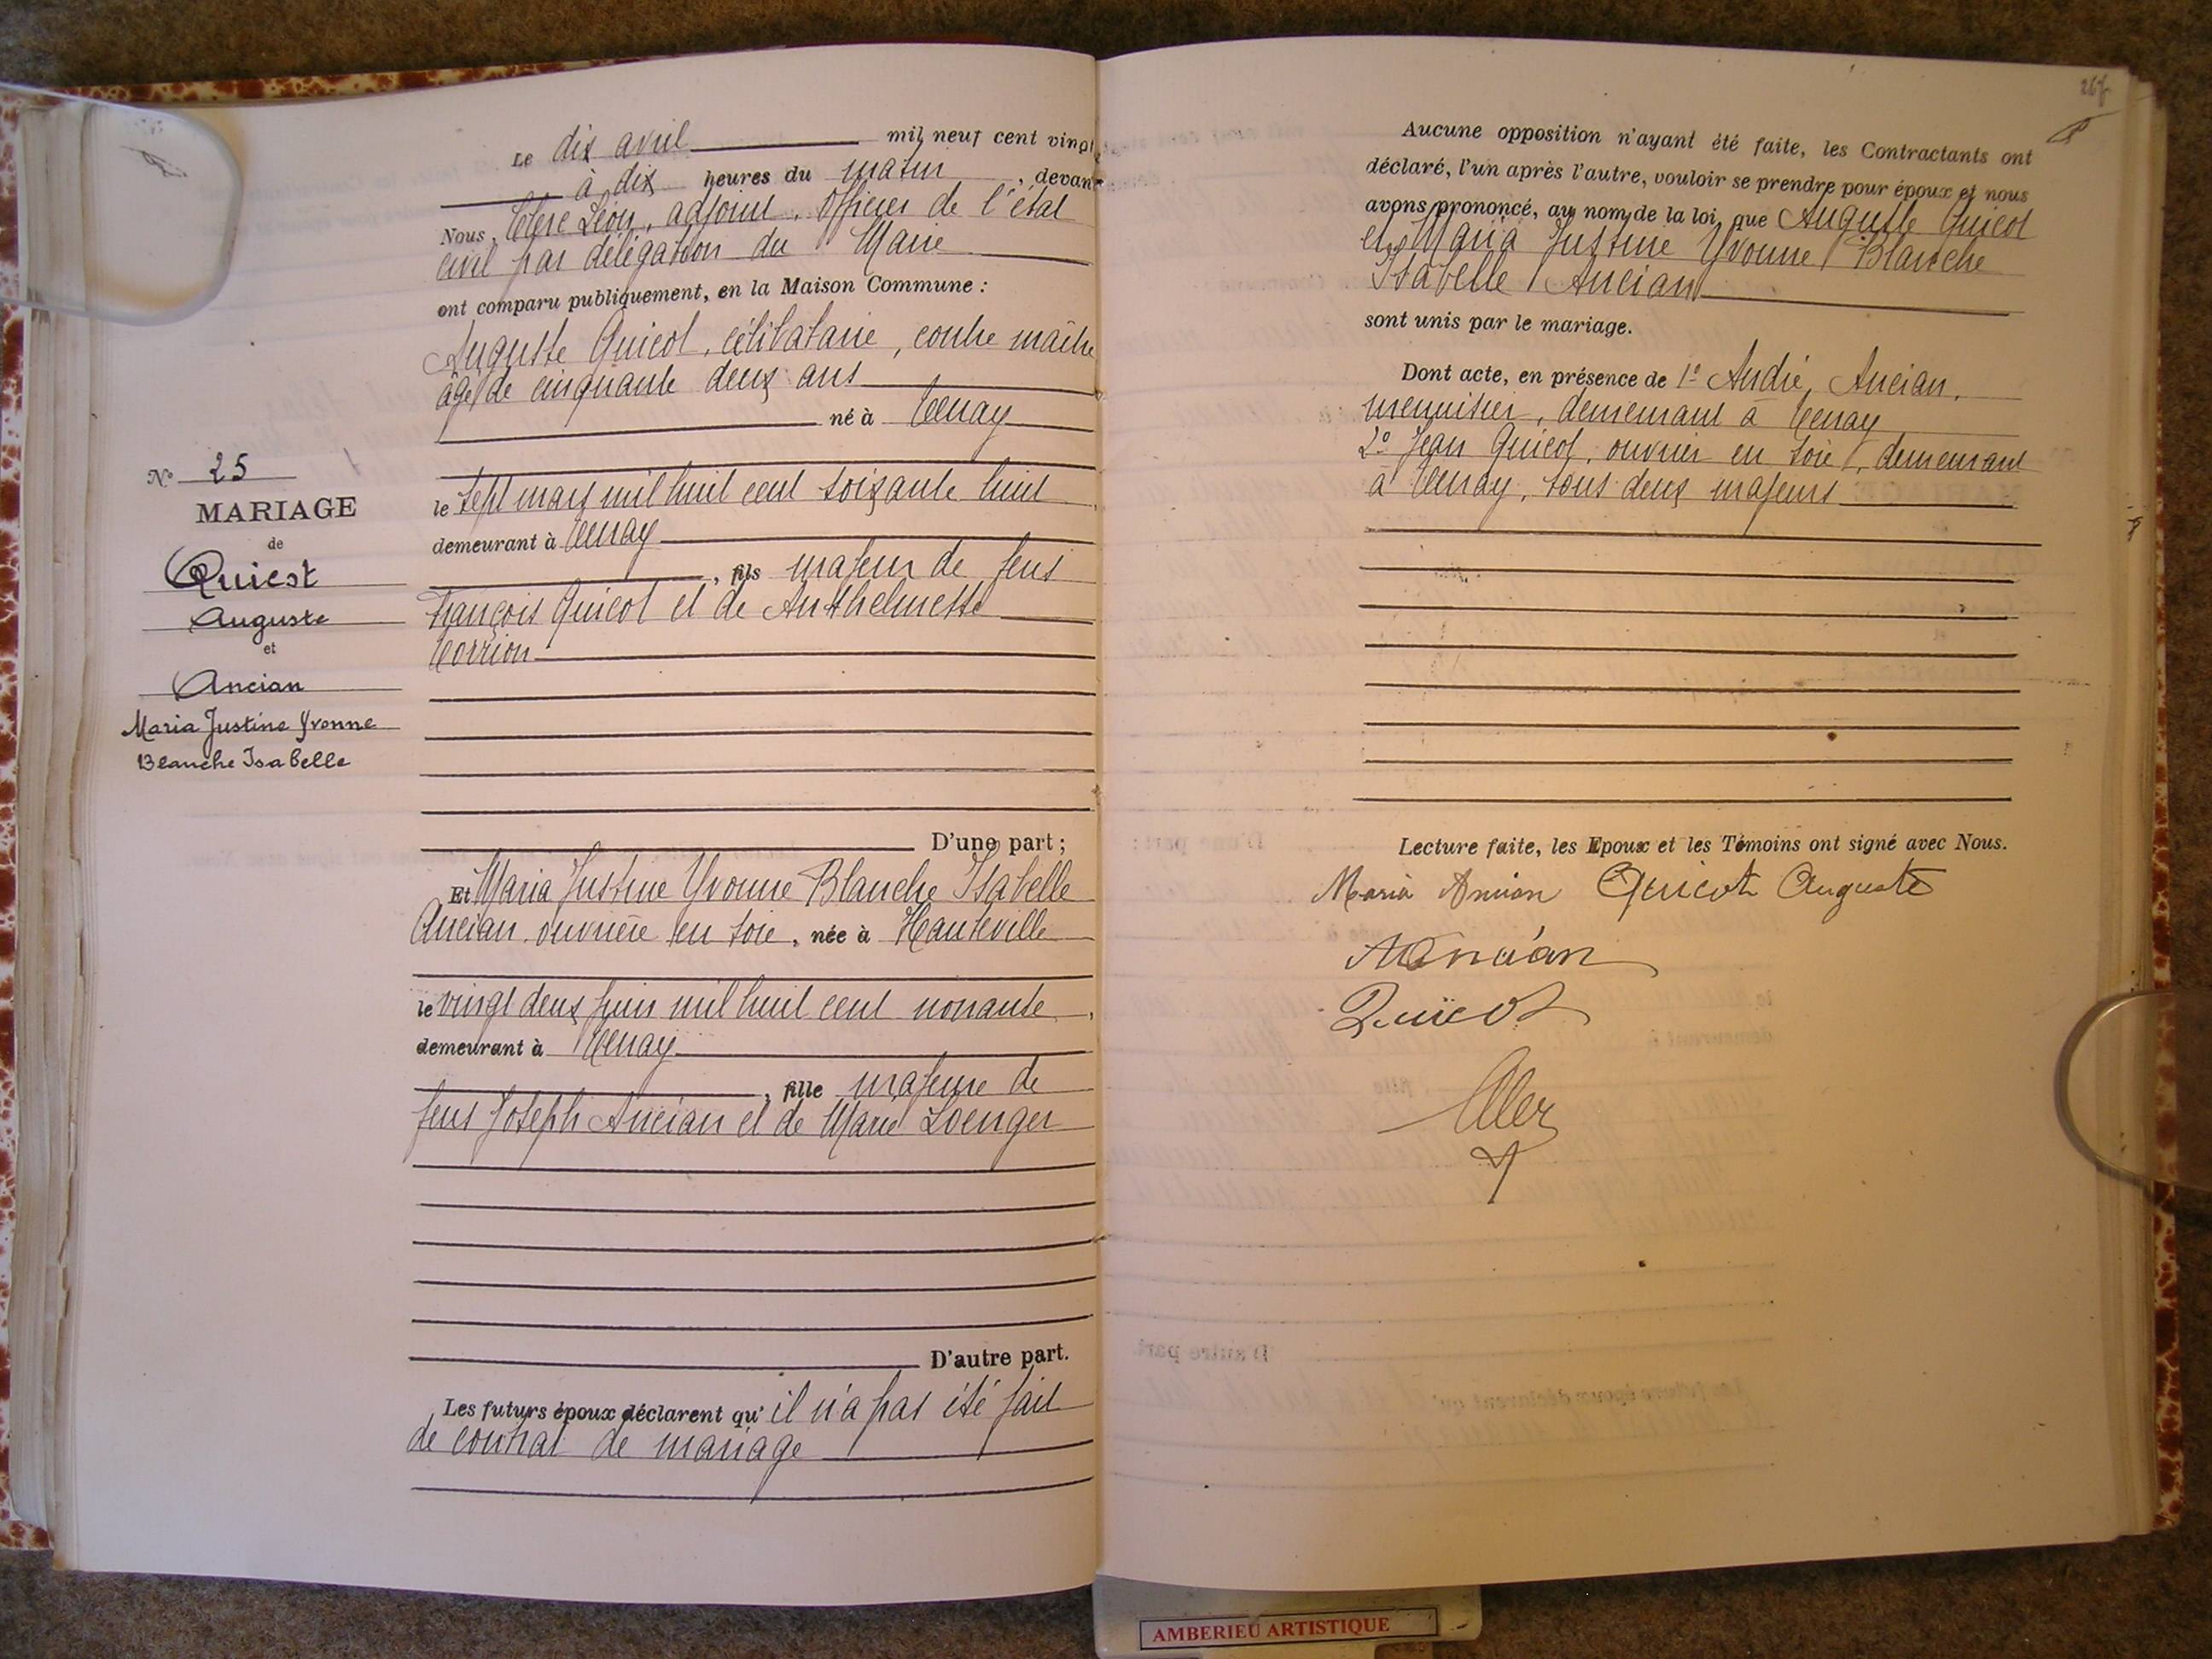 Le dix avril mil neuf cent vingt
à dix heures du matin, devant
Nous, Léon, adjoint, officier de l'état
civil par délégation du Maire
ont comparu publiquement, en la Maison Commune :
Auguste Quicot, célibataire, contre maître
âgé de cinquante deux ans
né à Tenay
N° 25
MARIAGE
de
Quicot
Auguste
et
Ancian
Maria Justine Yvonne
Blanche Isabelle
le sept mars mil huit cent soixante huit
demeurant à Tenay
, fils majeur de feus
François Quicot et de Anthelmette
D'une part ;
Et Maria Justine Yvonne Blanche Isabelle
Ancian ouvrière en soie, née à Hauteville
le vingt deux juin mil huit cent nonante,
demeurant à Tenay
, fille majeure de
feus Joseph Ancian et de Marie Loenger
D'autre part.
Les futurs époux déclarent qu'il n'a pas été fait
de contrat de mariage
267
Aucune opposition n'ayant été faite, les Contractants ont
déclaré, l'un après l'autre, vouloir se prendre pour époux et nous
avons prononcé, au nom de la loi, que Auguste Quicot
et Maria Justine Yvonne Blanche
Isabelle Ancian
sont unis par le mariage.
Dont acte, en présence de 1° André Ancian,
menuisier, demeurant à Tenay
2° Jean Quicot, ouvrier en soie, demeurant
à Tenay, tous deux majeurs
Lecture faite, les Epoux et les Témoins ont signé avec Nous.
Maria Ancian Quicot Auguste
Ancian
Quicot
AMBERIEU ARTISTIQUE